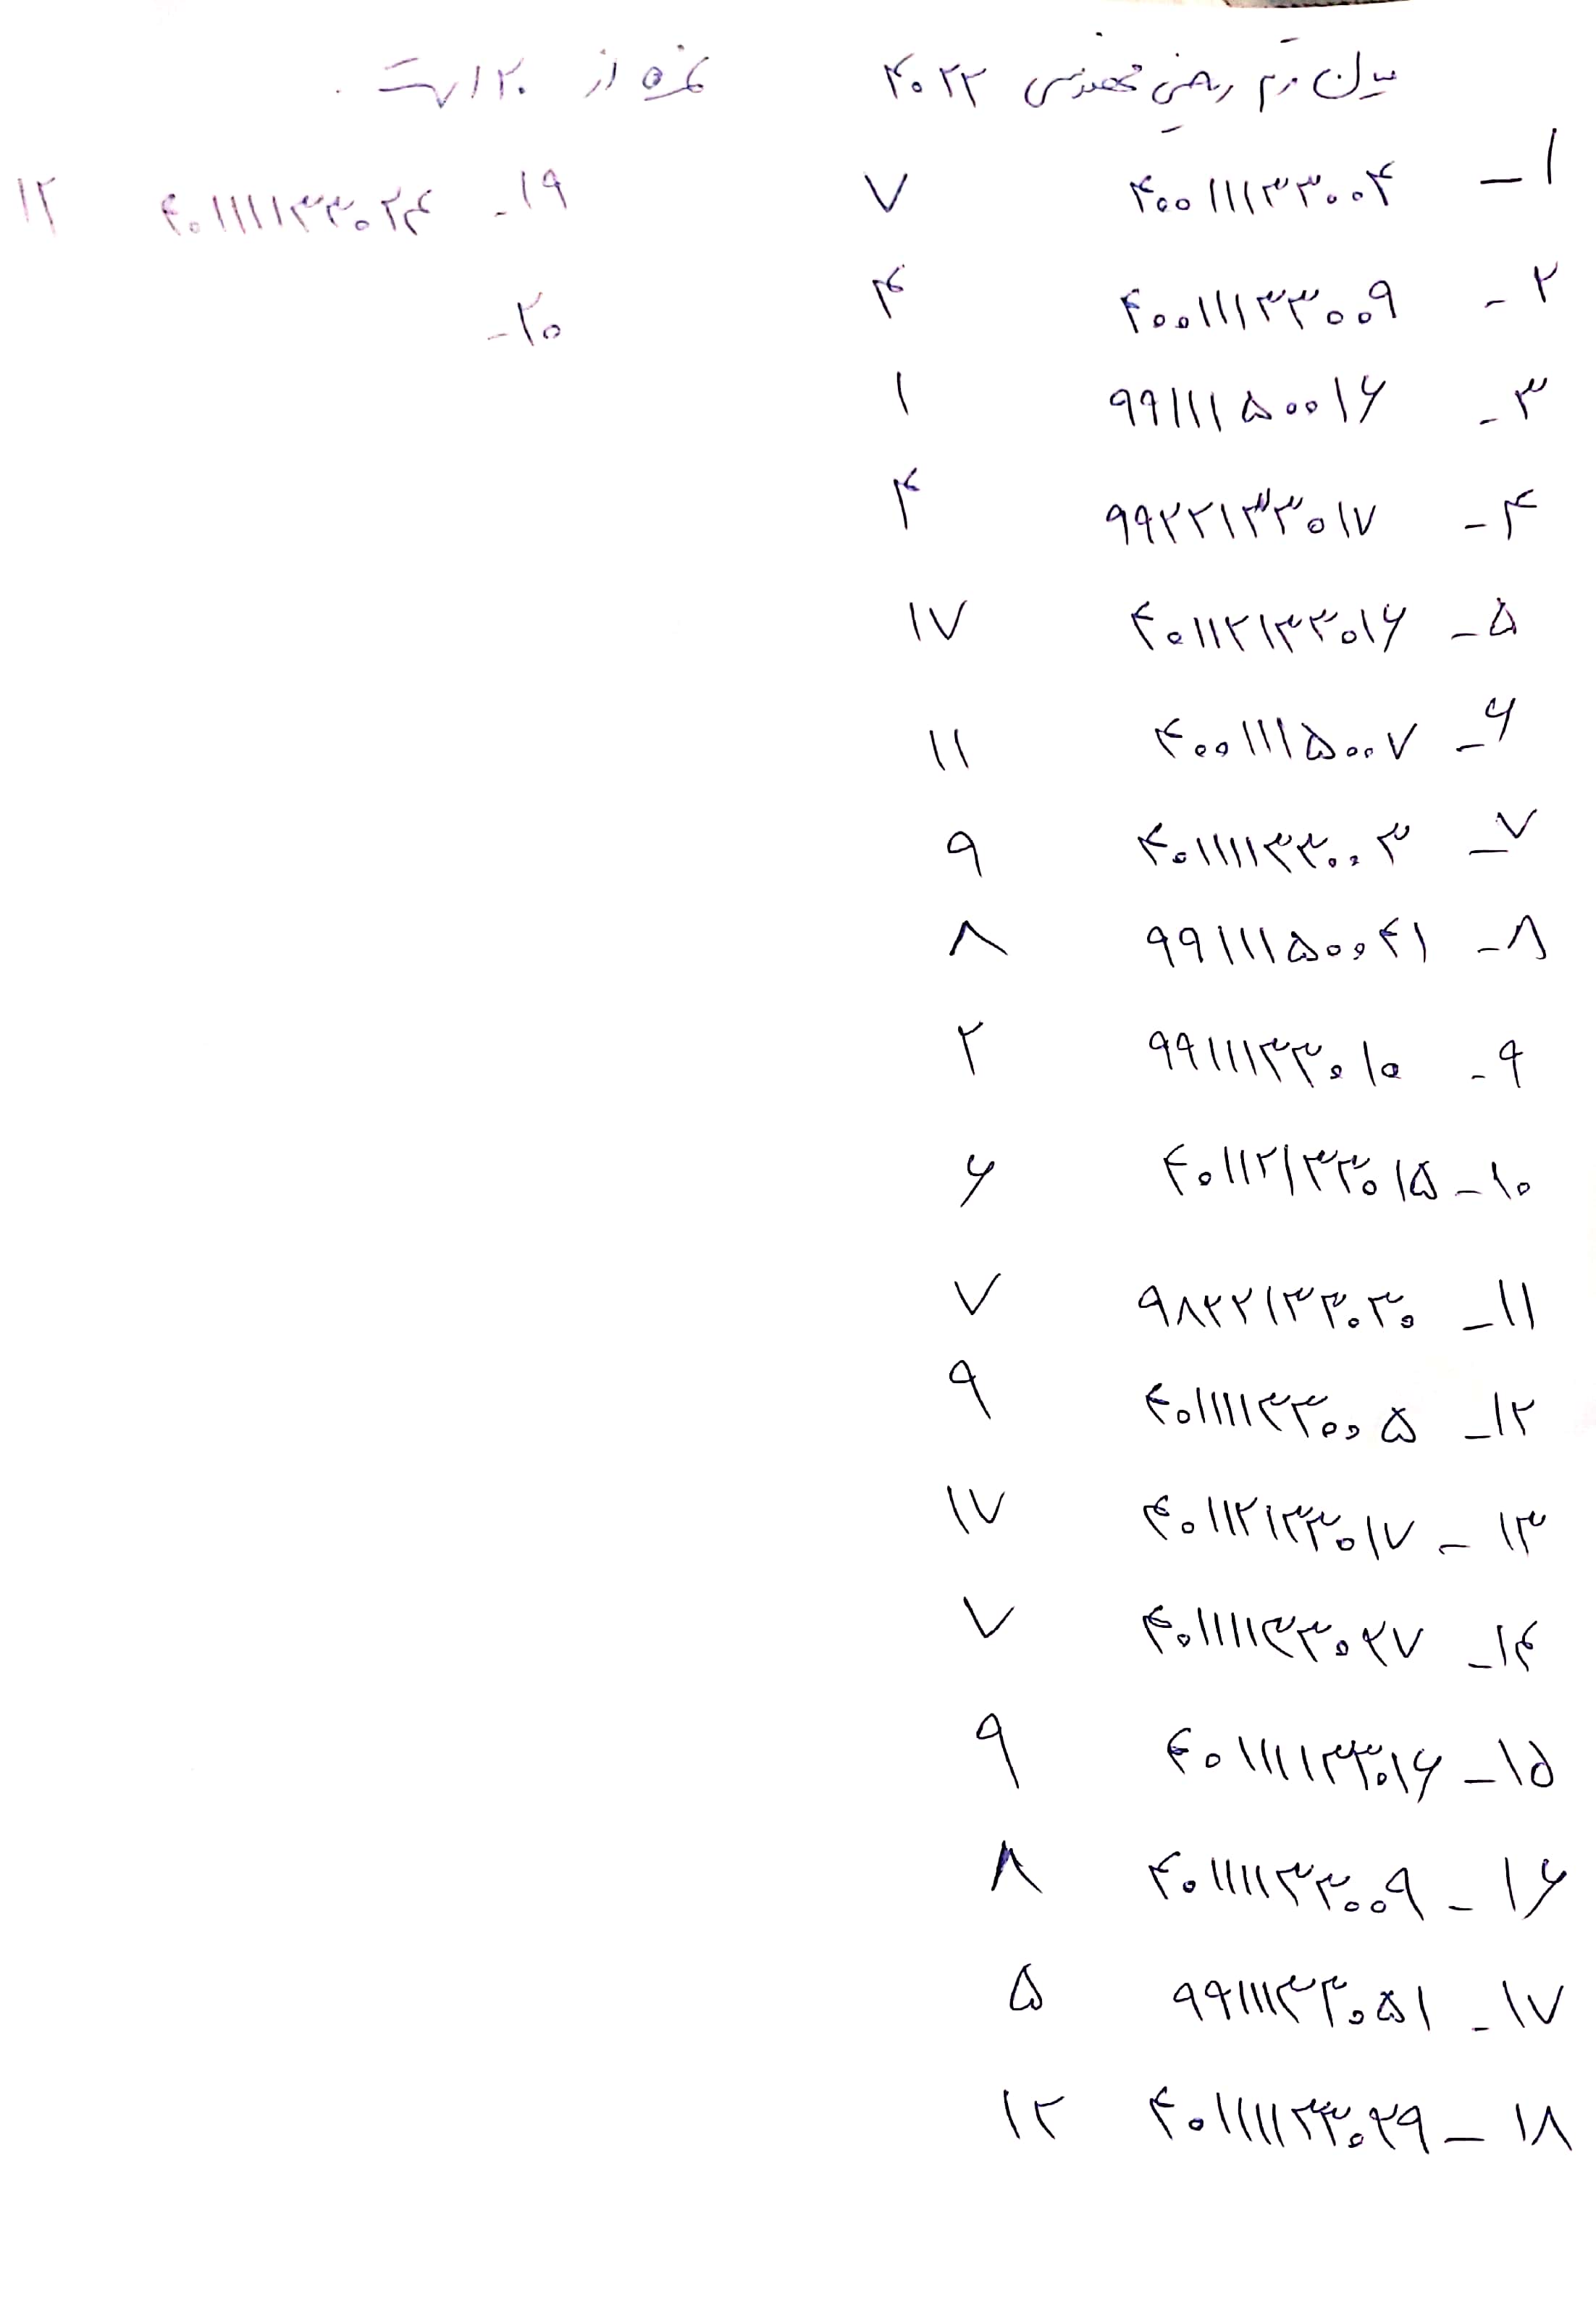 میان ترم ریاضی مهندسی ۴۰۲۲ نمره از ۲۰ است.
۱- ۴۰۰۱۱۱۱۳۳۰۰۴ ۷
۲- ۴۰۰۱۱۱۱۳۳۰۰۹ ۴
۳- ۹۹۱۱۱۱۵۰۰۱۶ ۱
۴- ۹۹۲۲۱۳۳۰۱۷ ۴
۵- ۴۰۱۱۲۱۳۳۰۱۶ ۱۷
۶- ۴۰۰۱۱۱۵۰۰۷ ۱۱
۷- ۴۰۱۱۱۱۱۳۳۰۰۳ ۹
۸- ۹۹۱۱۱۱۵۰۰۴۱ ۸
۹- ۹۹۱۱۱۱۳۳۰۱۰ ۲
۱۰- ۴۰۱۱۲۱۳۳۰۱۵ ۶
۱۱- ۹۸۲۲۱۳۳۰۳۰ ۷
۱۲- ۴۰۱۱۱۱۱۳۳۰۰۵ ۹
۱۳- ۴۰۱۱۲۱۳۳۰۱۷ ۱۷
۱۴- ۴۰۱۱۱۱۱۳۳۰۲۷ ۷
۱۵- ۴۰۱۱۱۱۱۳۳۰۱۶ ۹
۱۶- ۴۰۱۱۱۱۱۳۳۰۰۹ ۸
۱۷- ۹۹۱۱۱۱۳۳۰۵۱ ۵
۱۸- ۴۰۱۱۱۱۱۳۳۰۲۹ ۱۲
۱۹- ۴۰۱۱۱۱۱۳۳۰۲۴ ۱۲
۲۰-